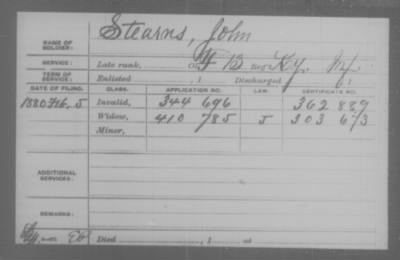 Stearns, John
NAME OF SOLDIER:
SERVICE: Late rank, Co. B Reg't Ky. Inf.
TERM OF SERVICE: Enlisted , 1 Discharged , 1
DATE OF FILING. CLASS. APPLICATION NO. LAW. CERTIFICATE NO.
1880 Feb. 5 Invalid, 344 696 362 889
Widow, 410 785 J 303 673
Minor,
ADDITIONAL SERVICES:
REMARKS:
Died , 1 , at